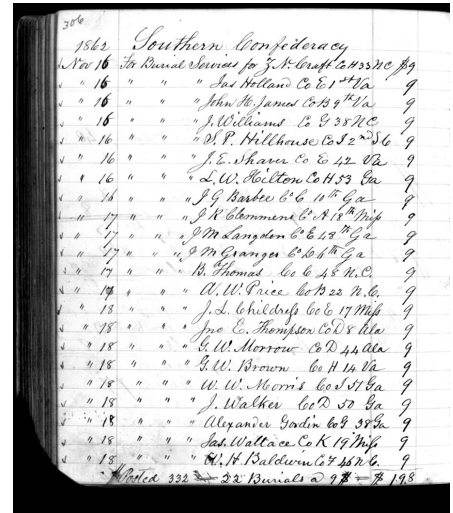 306
1862 Southern Confederacy
Nov 16 For Burial Services for Z. N. Craft Co H 33 NC $9
" 16 " " " Jas Holland Co E 1st Va 9
" 16 " " " John H. James Co B 9th Va 9
" 16 " " " J. Williams Co G 38 NC 9
" 16 " " " S. P. Hillhouse Co I 2nd S C 9
" 16 " " " J. E. Shaver Co E 42 Va 9
" 16 " " " L. W. Hilton Co H 53 Ga 9
" 16 " " " J G Barbee Co C 10th Ga 9
" 17 " " " J K Clemmens Co A 18th Miss 9
" 17 " " " J M Langdon Co E 48th Ga 9
" 17 " " " J M Granger Co 6th Ga 9
" 17 " " " B. Thomas Co C 48 N.C. 9
" 17 " " " A. W. Price Co B 22 N.C. 9
" 18 " " " J. L. Childress Co E 17 Miss 9
" 18 " " " Jno E. Thompson Co D 8 Ala 9
" 18 " " " G. W. Morrow Co D 44 Ala 9
" 18 " " " G. W. Brown Co H 14 Va 9
" 18 " " " W. W. Morris Co I 51 Ga 9
" 18 " " " J. Walker Co D 50 Ga 9
" 18 " " " Alexander Gordin Co G 38 Ga 9
" 18 " " " Jas. Wallace Co K 19 Miss 9
" 18 " " " W. H. Baldwin Co F 46 N C. 9
Posted 332 22 Burials @ 9 $ = $ 198